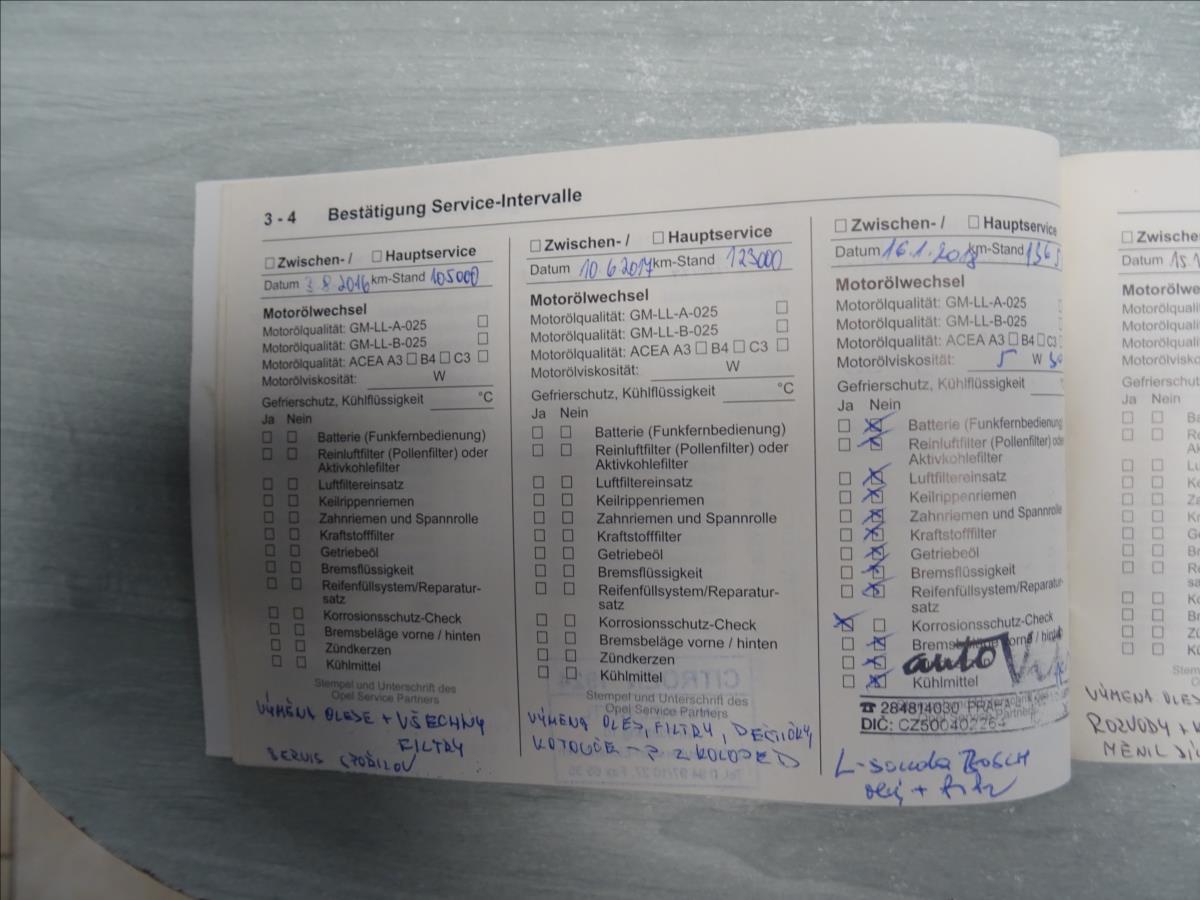 3 - 4 Bestätigung Service-Intervalle
☐ Zwischen- / ☐ Hauptservice
Datum 3 8 2016 km-Stand 105000
Motorölwechsel
Motorölqualität: GM-LL-A-025 ☐
Motorölqualität: GM-LL-B-025 ☐
Motorölqualität: ACEA A3 ☐ B4 ☐ C3 ☐
Motorölviskosität: W
Gefrierschutz, Kühlflüssigkeit °C
Ja Nein
☐ ☐ Batterie (Funkfernbedienung)
☐ ☐ Reinluftfilter (Pollenfilter) oder
Aktivkohlefilter
☐ ☐ Luftfiltereinsatz
☐ ☐ Keilrippenriemen
☐ ☐ Zahnriemen und Spannrolle
☐ ☐ Kraftstofffilter
☐ ☐ Getriebeöl
☐ ☐ Bremsflüssigkeit
☐ ☐ Reifenfüllsystem/Reparatur-
satz
☐ ☐ Korrosionsschutz-Check
☐ ☐ Bremsbeläge vorne / hinten
☐ ☐ Zündkerzen
☐ ☐ Kühlmittel
Stempel und Unterschrift des
Opel Service Partners
VÝMĚNA OLEJE + VŠECHNY
FILTRY
SERVIS SPOŘILOV
☐ Zwischen- / ☐ Hauptservice
Datum 10 6 2017 km-Stand 123000
Motorölwechsel
Motorölqualität: GM-LL-A-025 ☐
Motorölqualität: GM-LL-B-025 ☐
Motorölqualität: ACEA A3 ☐ B4 ☐ C3 ☐
Motorölviskosität: W
Gefrierschutz, Kühlflüssigkeit °C
Ja Nein
☐ ☐ Batterie (Funkfernbedienung)
☐ ☐ Reinluftfilter (Pollenfilter) oder
Aktivkohlefilter
☐ ☐ Luftfiltereinsatz
☐ ☐ Keilrippenriemen
☐ ☐ Zahnriemen und Spannrolle
☐ ☐ Kraftstofffilter
☐ ☐ Getriebeöl
☐ ☐ Bremsflüssigkeit
☐ ☐ Reifenfüllsystem/Reparatur-
satz
☐ ☐ Korrosionsschutz-Check
☐ ☐ Bremsbeläge vorne / hinten
☐ ☐ Zündkerzen
☐ ☐ Kühlmittel
Stempel und Unterschrift des
Opel Service Partners
VÝMENA OLEJ, FILTRY, DESTIČKY,
KOTOUČE - P. Z KOLODEJ
☐ Zwischen- / ☐ Hauptservice
Datum 16.1.2018 km-Stand 136
Motorölwechsel
Motorölqualität: GM-LL-A-025
Motorölqualität: GM-LL-B-025
Motorölqualität: ACEA A3 ☐ B4 ☐ C3
Motorölviskosität: 5 W 30
Gefrierschutz, Kühlflüssigkeit
Ja Nein
☐ ☒ Batterie (Funkfernbedienung)
☐ ☒ Reinluftfilter (Pollenfilter) oder
Aktivkohlefilter
☐ ☒ Luftfiltereinsatz
☐ ☒ Keilrippenriemen
☐ ☒ Zahnriemen und Spannrolle
☐ ☒ Kraftstofffilter
☐ ☒ Getriebeöl
☐ ☒ Bremsflüssigkeit
☐ ☒ Reifenfüllsystem/Reparatur-
satz
☒ ☐ Korrosionsschutz-Check
☐ ☒ Bremsbeläge vorne / hinten
☐ ☒ auto
☐ ☒ Kühlmittel
☎ 284814030 PRAHA
DIČ: CZ500402264
L-sonda BOSCH
olej + filtr
☐ Zwischen-
Datum 15.1
Motorölwe
Motorölqua
Motorölqua
Motorölqua
Motorölvisko
Gefrierschutz
Ja Nein
VÝMENA OLE
ROZVODY +
MĚNIL